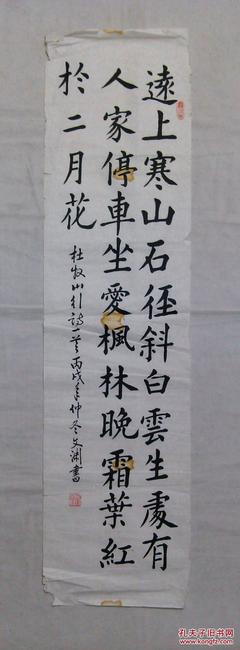 遠上寒山石徑斜白雲生處有
人家停車坐愛楓林晚霜葉紅
於二月花
杜牧山行詩一首丙戌年仲冬文渊書